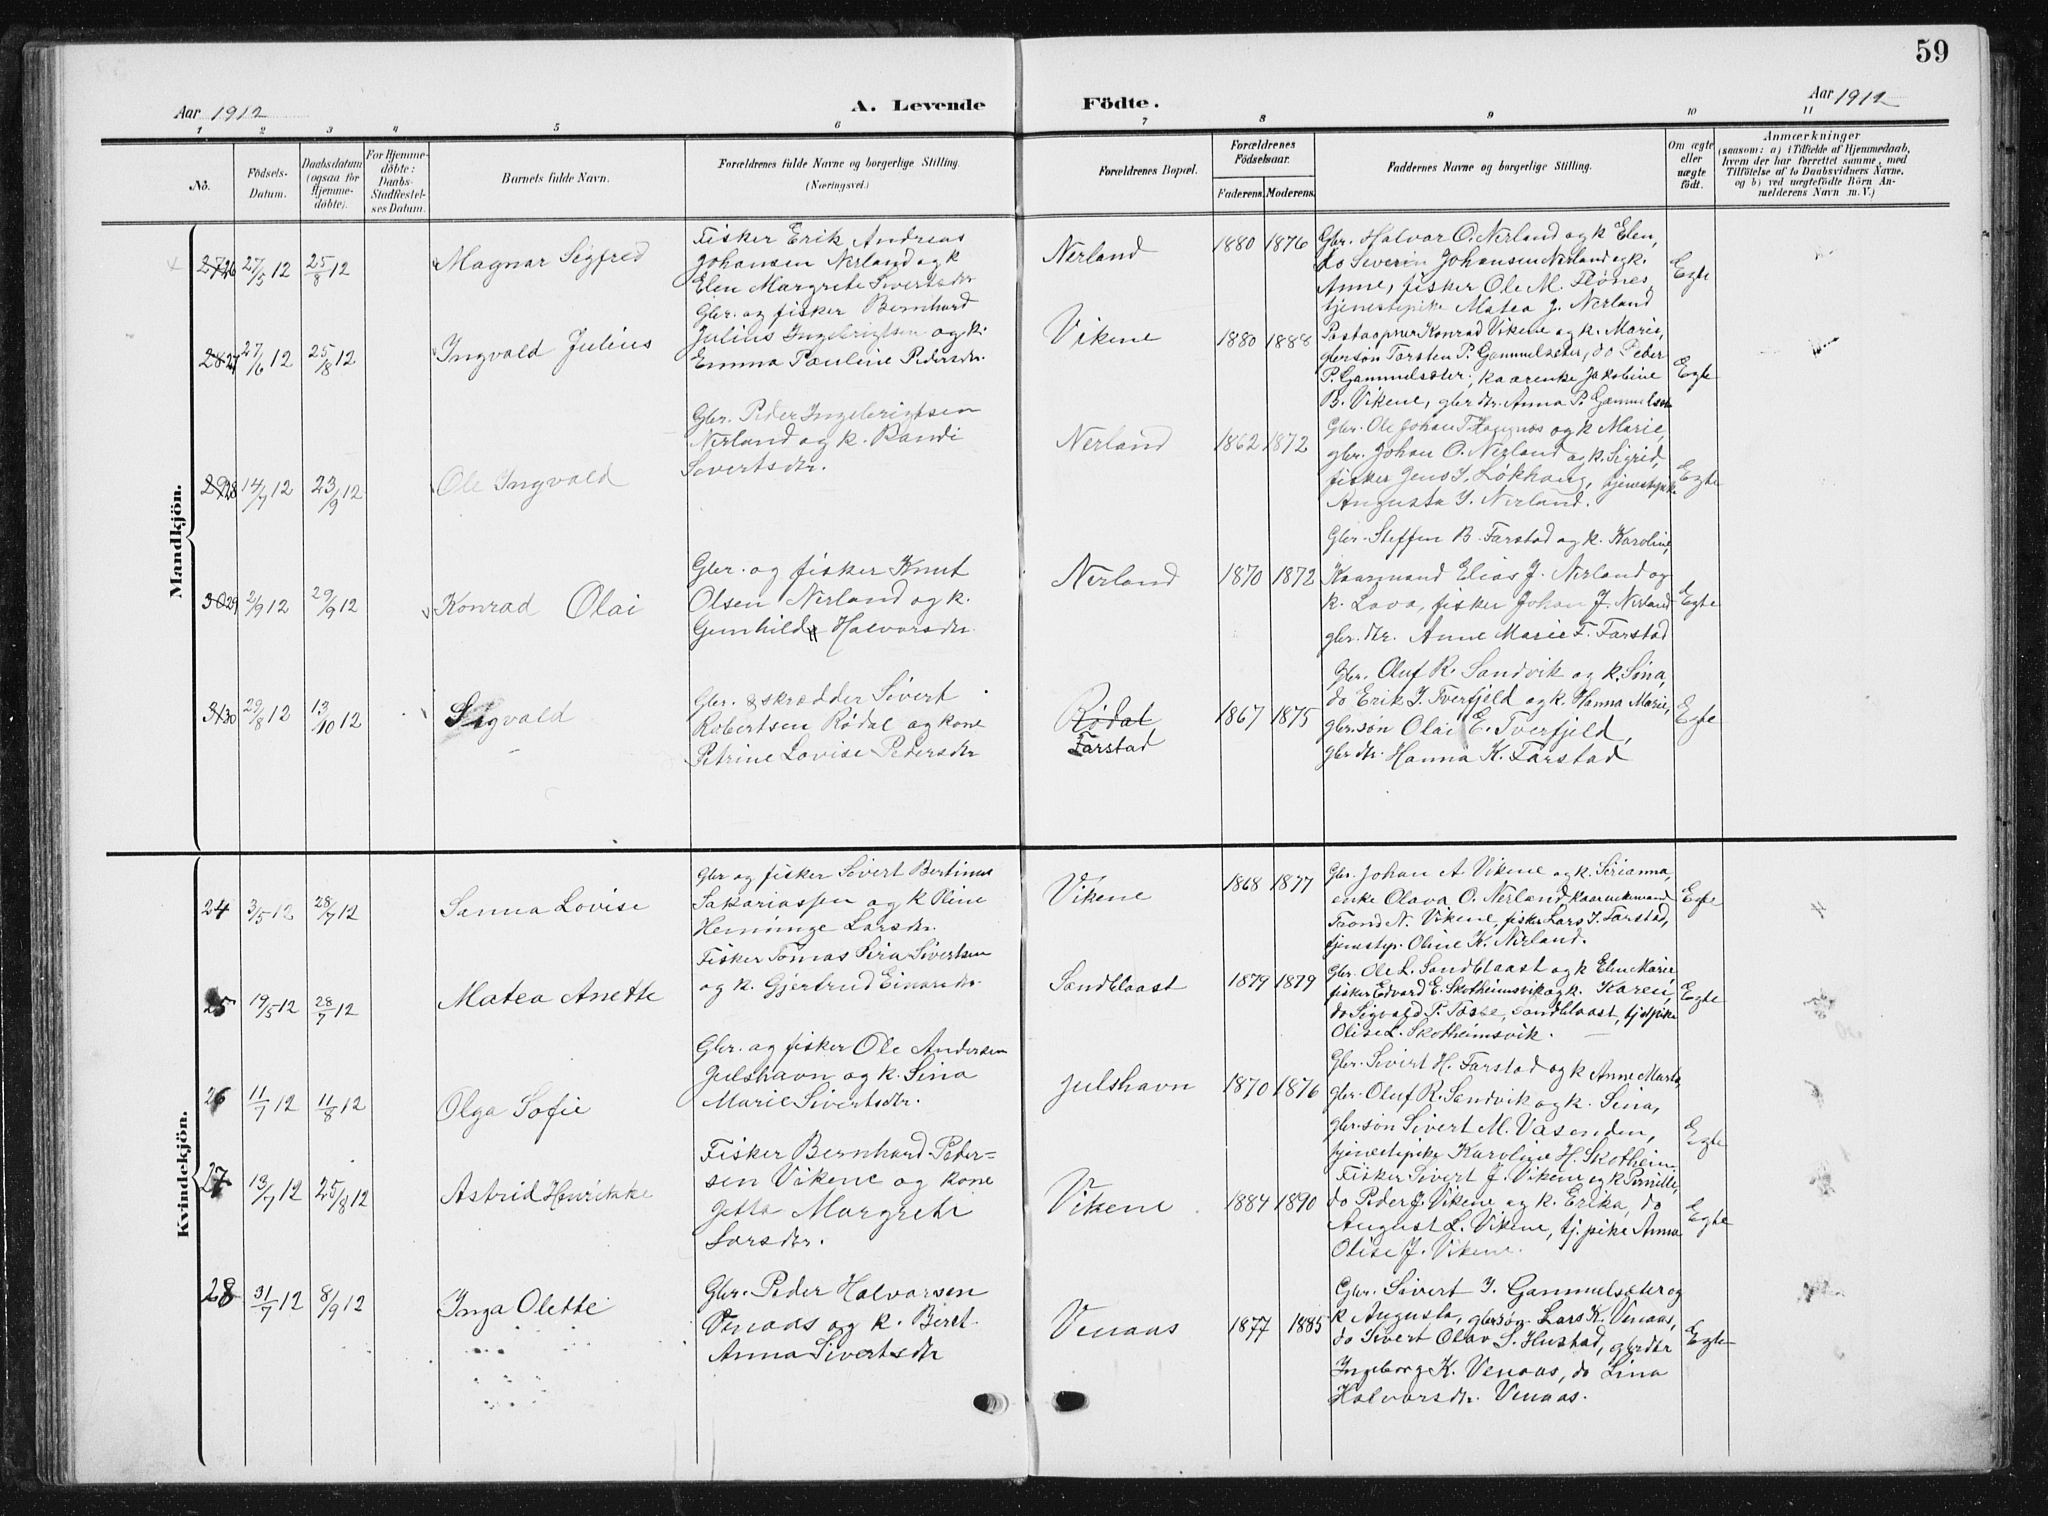 59
Aar 1912
A. Levende Födte.
Aar 1912
1 2 3 4 5 6 7 8 9 10 11
No.
Födsels-
Datum.
Daabsdatum
(ogsaa for
Hjemme-
döbte).
For Hjemme-
döbte:
Daabs-
Stadfæstel-
ses Datum.
Barnets fulde Navn.
Forældrenes fulde Navne og borgerlige Stilling.
(Næringsvei.)
Forældrenes Bopæl.
Forældrenes
Födselsaar.
Faderens. Moderens.
Faddernes Navne og borgerlige Stilling.
Om ægte
eller
uægte
födt.
Anmærkninger
(saasom: a) i Tilfælde af Hjemmedaab,
hvem der har forrettet samme, med
Tilföielse af to Daabsvidners Navne,
og b) ved uægtefödte Börn An-
melderens Navn m. V.)
Mandkjön.
26 27/5 12 25/8 12
Magnar Sigfred
Fisker Erik Andreas
Johansen Nerland og k
Elen Margrete Sivertsdtr
Nerland
1880 1876
Gbr. Halvar O. Nerland og k Elen,
do Severin Johansen Nerland og k.
Anne, fisker Ole M. Flønes,
tjenestepike Matea J. Nerland
Egte
27 27/6 12 25/8 12
Ingvald Julius
Gbr. og fisker Bernhard
Julius Ingebrigtsen og k.
Emma Pauline Pedersdr.
Vikene
1880 1888
Postaapner Konrad Vikene og k. Marie,
gbrsøn Torsten P. Gammelseter, do Peder
P. Gammelseter, kaarenke Jakobine
B. Vikene, gbr dtr. Anna P. Gammelseter
Egte
28 14/7 12 23/9 12
Ole Ingvald
Gbr. Peder Ingebrigtsen
Nerland og k. Randi
Sivertsdtr.
Nerland
1862 1872
Gbr. Ole Johan T. og k Marie,
gbr. Johan O. Nerland og k. Sigrid,
fisker Jens I. Løkhaug, tjenestepike
Augusta I. Nerland.
Egte
29 2/9 12 29/9 12
Konrad Olai
Gbr. og fisker Knut
Olsen Nerland og k.
Gunhild Halvorsdtr.
Nerland
1870 1872
Gbr. Steffen B. Farstad og k. Karoline,
Kaarmand Elias J. Nerland og
k. Lava, fisker Johan J. Nerland
gbr. dtr. Anne Marie F. Farstad
Egte
30 29/8 12 13/10 12
Sigvald
Gbr. & skrædder Sivert
Robertsen Rødal og kone
Petrine Lovise Pedersdtr
Rødal
Farstad
1867 1875
Gbr. Oluf R. Sandvik og k. Sina,
do Erik I. Tverfjeld og k. Hanna Marie,
gbr.søn Olai E. Tverfjeld,
gbr dtr. Hanna K. Farstad
Egte
Kvindekjön.
24 3/5 12 28/7 12
Sanna Lovise
Gbr og fisker Sivert Bertinus
Sakariassen og k Pline
Henninge Larsdtr.
Vikene
1868 1877
Gbr. Johan A. Vikene og k. Serianna,
enke Olava O. Nerland kaarenkemand
Trond N. Vikene, fisker Lars I. Farstad,
tjenestep. Oline K. Nerland.
Egte
25 19/5 12 28/7 12
Matea Anette
Fisker Tomas Sira Sivertsen
og k. Gjertrud Einarsdtr.
Sandblaast
1879 1879
Gbr. Ole L. Sandblaast og k Elen Marie,
fisker Edvard E. Skotheimsvik og k. Karen,
do Sigvald P. Tosse, Sandblaast, tj.pike
Olise L. Skotheimsvik.
Egte
26 11/7 12 11/8 12
Olga Sofie
Gbr. og fisker Ole Andersen
Julshavn og k. Sina
Marie Sivertsdtr.
Julshavn
1870 1876
Gbr. Sivert H. Farstad og k Anne Marta
gbr. Oluf R. Sandvik og k. Sina,
gbr.søn Sivert M. Vasenden,
tjenestepike Karoline H. Skotheim
Egte
27 13/7 12 25/8 12
Astrid Henrikke
Fisker Bernhard Peder-
sen Vikene og kone
Jetta Margrete
Larsdtr.
Vikene
1884 1890
Fisker Sivert J. Vikene og k Pernille,
do Peder J. Vikene og k. Erika, do
August L. Vikene, tj. pike Anna
Olise J. Vikene.
Egte
28 31/7 12 8/9 12
Inga Olette
Gbr. Peder Halvorsen
Venaas og k. Beret
Anna Sivertsdtr
Venaas
1877 1885
Gbr. Sivert I. Gammelseter og
k Augusta, gbrsøn Lars K. Venaas,
do Sivert Olav S. Hustad, gbrdtr
Ingeborg K. Venaas, do Lina
Halvorsdtr. Venaas.
Egte